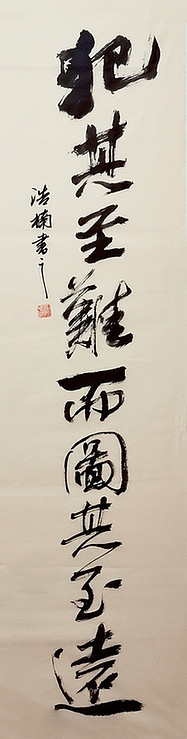 犯其至難而圖其至遠
浩楠書之